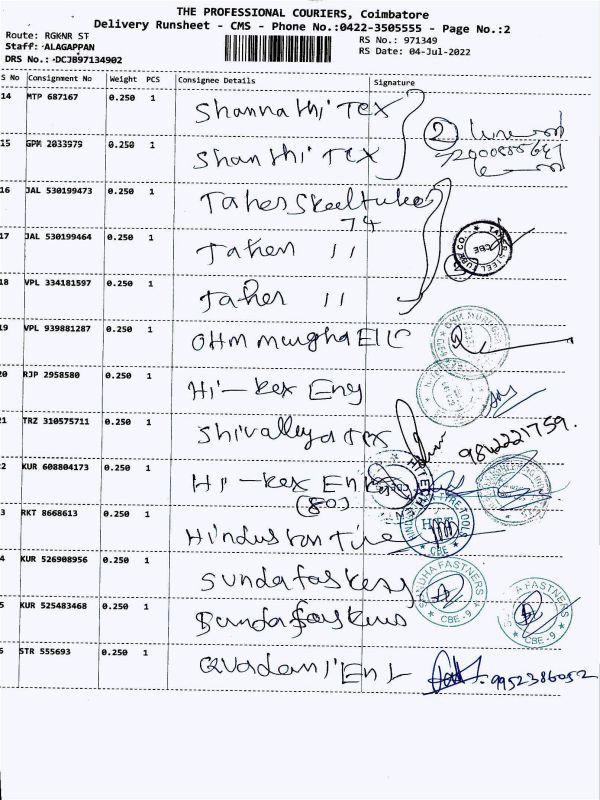 THE PROFESSIONAL COURIERS, Coimbatore
Delivery Runsheet - CMS - Phone No.:0422-3505555 - Page No.:2
Route: RGKNR ST
RS No.: 971349
Staff: ALAGAPPAN
RS Date: 04-Jul-2022
DRS No.: DCJB97134902
S No Consignment No Weight PCS Consignee Details Signature
14 MTP 687167 0.250 1 Shannathi Tex
15 GPM 2033979 0.250 1 Shanthi Tex
2
16 JAL 530199473 0.250 1 Taher Steeltube
74
17 JAL 530199464 0.250 1 Taher 11
CBE
18 VPL 334181597 0.250 1 Taher 11
19 VPL 939881287 0.250 1 OHM
20 RJP 2958580 0.250 1 Hi-Rex Eng
21 TRZ 310575711 0.250 1 Tex
9842221759.
22 KUR 608804173 0.250 1 Hi-Rex
(80)
3 RKT 8668613 0.250 1 Hindustan Tire
HINDUSTAN TIRE TOOLS
CBE
4 KUR 526908956 0.250 1 Sunda
FASTNERS
CBE-9
5 KUR 525483468 0.250 1 Sunda
FASTNERS
CBE-9
6 STR 555693 0.250 1
9952386052